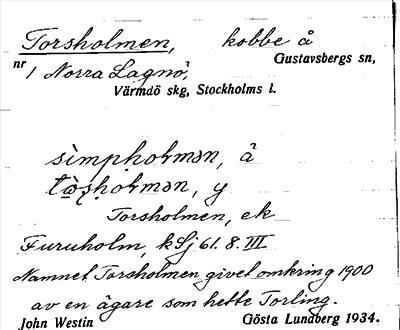 Torsholmen, kobbe å
Gustavsbergs sn,
nr 1 Norra Lagnö,
Värmdö skg, Stockholms l.
sìmpho𝗍mən, å
tò̤s̩ho𝗍mən, y
Torsholmen, ek
Furuholm, k Sj 61. 8. III
Namnet Torsholmen givet omkring 1900
av en ägare som hette Torling.
John Westin Gösta Lundberg 1934.